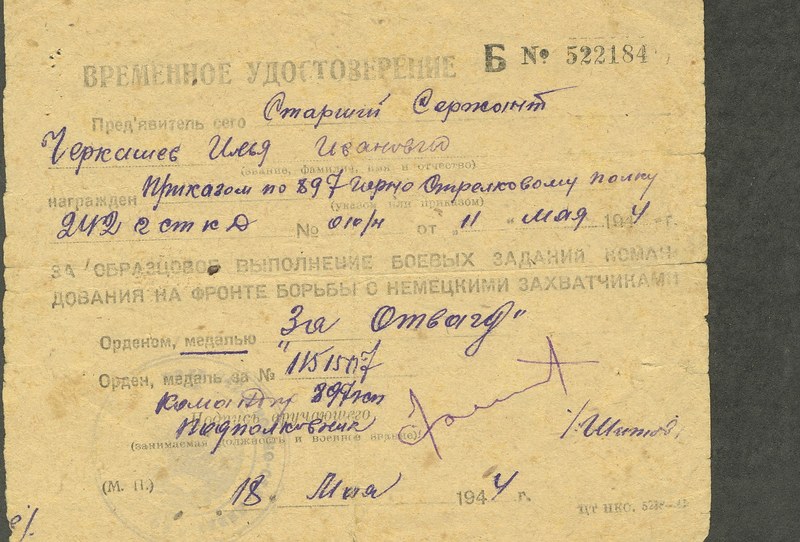 ВРЕМЕННОЕ УДОСТОВЕРЕНИЕ Б № 522184
Пред'явитель сего Старший Сержант
Черкашев Илья Иванович
(звание, фамилия, имя и отчество)
награжден Приказом по 897 Горно Стрелковому полку
(указом или приказом)
242 г ст к д № 010/н от „11" мая 1944 г.
ЗА ОБРАЗЦОВОЕ ВЫПОЛНЕНИЕ БОЕВЫХ ЗАДАНИЙ КОМАН-
ДОВАНИЯ НА ФРОНТЕ БОРЬБЫ С НЕМЕЦКИМИ ЗАХВАТЧИКАМИ
Орденом, медалью „За Отвагу"
Орден, медаль за №
Командир 897
Подпись вручающего
Подполковник
(занимаемая должность и военное звание)
(М. П.) 18 Мая 1944 г.